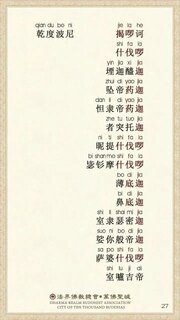 qian du bo ni jie la he
乾度波尼 揭啰诃
shi fa la
什伐啰
yin jia xi jia
堙迦醯迦
zhui di yao jia
坠帝药迦
dan li di yao jia
怛隶帝药迦
zhe tu tuo jia
者突托迦
ni ti shi fa la
昵提什伐啰
bi shan mo shi fa la
毖钐摩什伐啰
bo di jia
薄底迦
bi di jia
鼻底迦
shi li se mi jia
室隶瑟密迦
suo ni bo di jia
娑你般帝迦
sa po shi fa la
萨婆什伐啰
shi lu ji di
室嚧吉帝
法界佛教總會 • 萬佛聖城
DHARMA REALM BUDDHIST ASSOCIATION
CITY OF TEN THOUSAND BUDDHAS
27